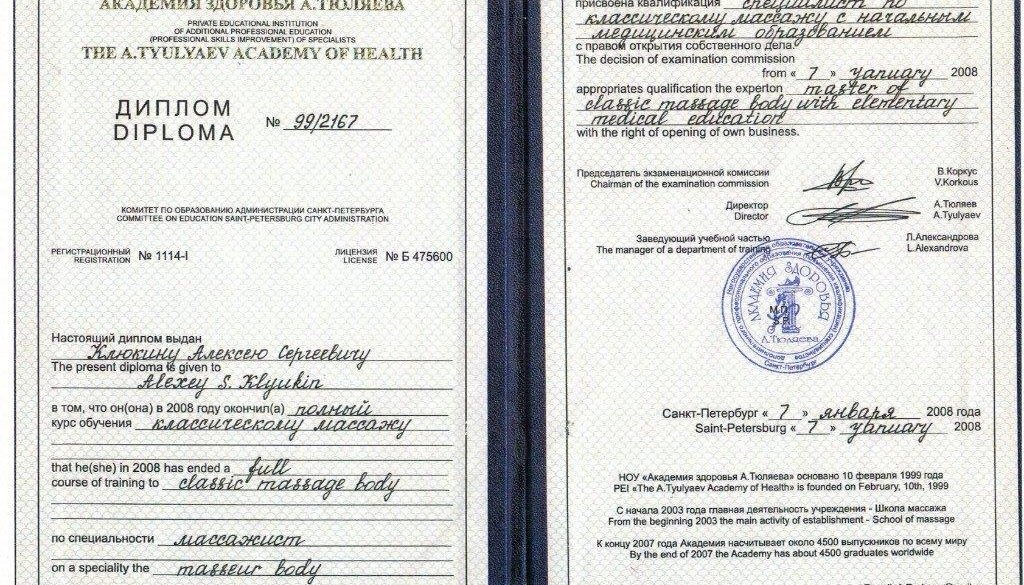 АКАДЕМИЯ ЗДОРОВЬЯ А.ТЮЛЯЕВА
PRIVATE EDUCATIONAL INSTITUTION
OF ADDITIONAL PROFESSIONAL EDUCATION
(PROFESSIONAL SKILLS IMPROVEMENT) OF SPECIALISTS
THE A.TYULYAEV ACADEMY OF HEALTH
ДИПЛОМ
DIPLOMA
№ 99/2167
КОМИТЕТ ПО ОБРАЗОВАНИЮ АДМИНИСТРАЦИИ САНКТ-ПЕТЕРБУРГА
COMMITTEE ON EDUCATION SAINT-PETERSBURG CITY ADMINISTRATION
РЕГИСТРАЦИОННЫЙ
REGISTRATION № 1114-I
ЛИЦЕНЗИЯ
LICENSE № Б 475600
Настоящий диплом выдан
Клюкину Алексею Сергеевичу
The present diploma is given to
Alexey S. Klyukin
в том, что он(она) в 2008 году окончил(а) полный
курс обучения классическому массажу
that he(she) in 2008 has ended a full
course of training to classic massage body
по специальности массажист
on a speciality the masseur body
присвоена квалификация специалист по
классическому массажу с начальным
медицинским образованием
с правом открытия собственного дела.
The decision of examination commission
from « 7 » yanuary 2008
appropriates qualification the experton master of
classic massage body with elementary
medical education
with the right of opening of own business.
Председатель экзаменационной комиссии В.Коркус
Chairman of the examination commission V.Korkous
Директор А.Тюляев
Director A.Tyulyaev
Заведующий учебной частью Л.Александрова
The manager of a department of training L.Alexandrova
АКАДЕМИЯ ЗДОРОВЬЯ
А.Тюляева
Санкт-Петербург
Санкт-Петербург « 7 » января 2008 года
Saint-Petersburg « 7 » yanuary 2008
НОУ «Академия здоровья А.Тюляева» основано 10 февраля 1999 года
PEI «The A.Tyulyaev Academy of Health» is founded on February, 10th, 1999
С начала 2003 года главная деятельность учреждения - Школа массажа
From the beginning 2003 the main activity of establishment - School of massage
К концу 2007 года Академия насчитывает около 4500 выпускников по всему миру
By the end of 2007 the Academy has about 4500 graduates worldwide